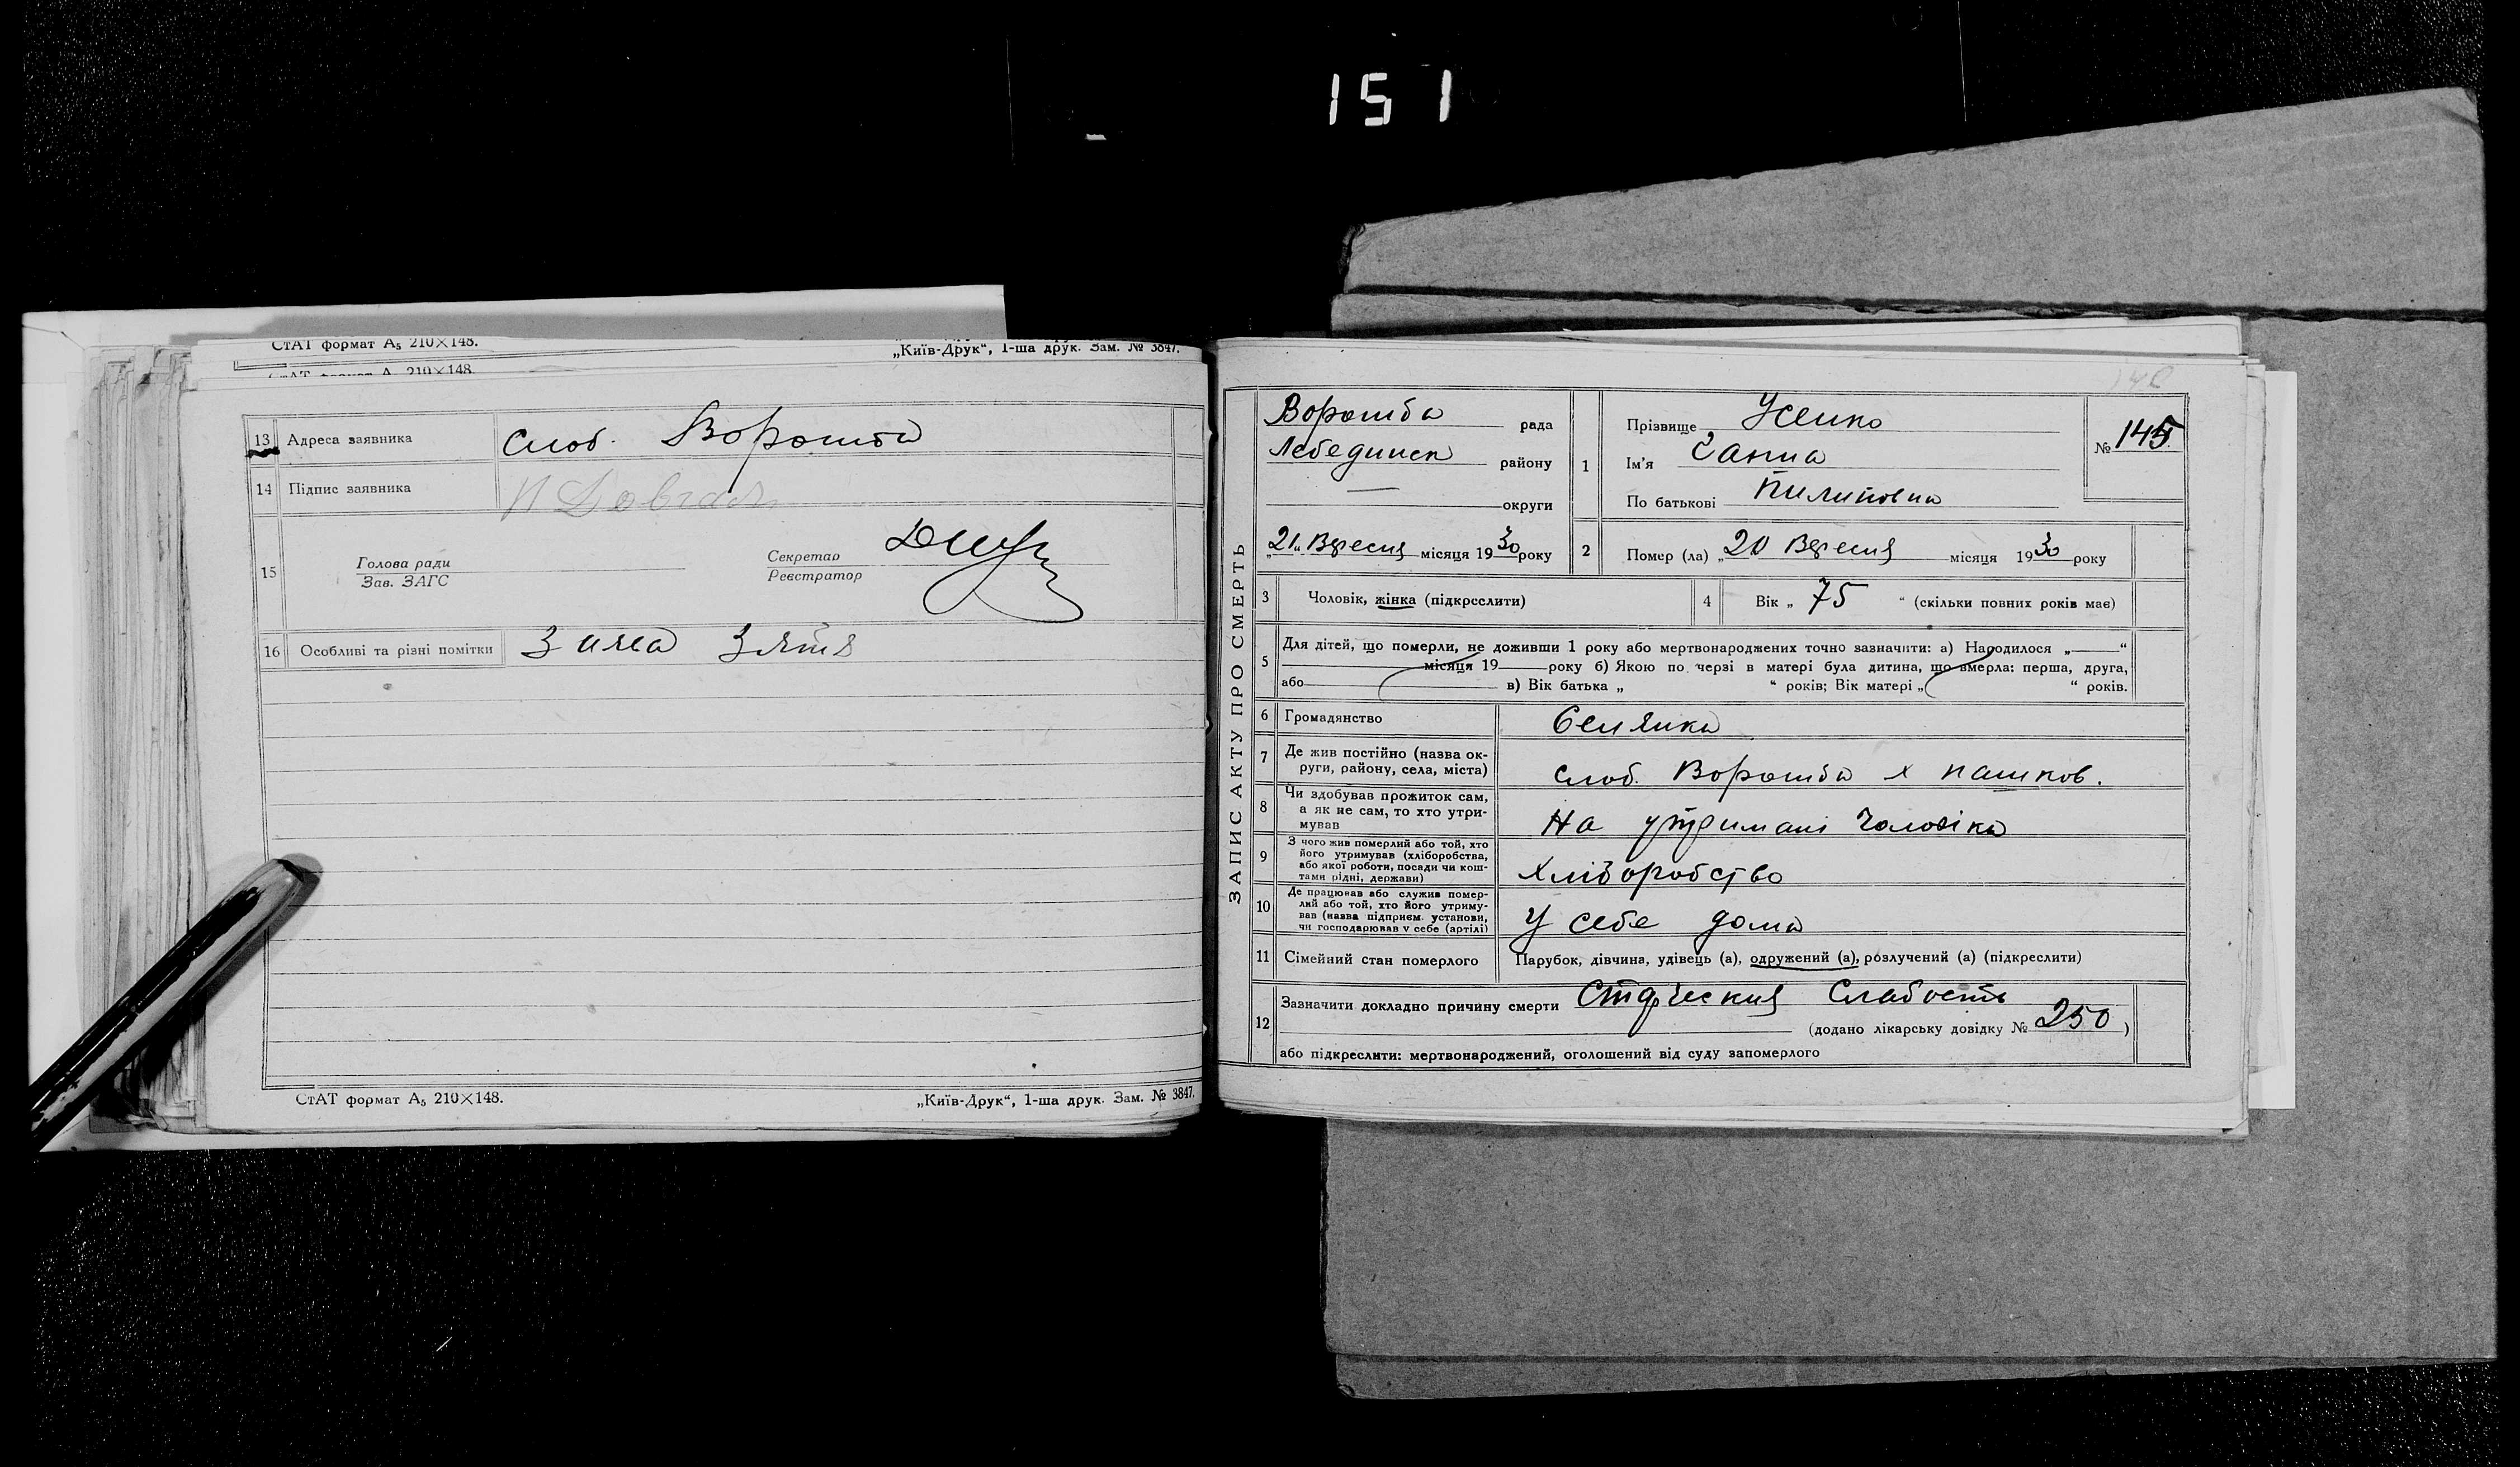 151
СтАТ формат А₅ 210×148.
„Київ-Друк“, 1-ша друк. Зам. № 3847.
СтАТ формат А 210×148.
13 Адреса заявника Слоб. Ворожба
14 Підпис заявника
15 Голова ради
Зав. ЗАГС
Секретар
Реєстратор
16 Особливі та різні помітки
СтАТ формат А₅ 210×148.
„Київ-Друк“, 1-ша друк. Зам. № 3847.
ЗАПИС АКТУ ПРО СМЕРТЬ
Ворожба рада
Лебединск району
— округи
„21“ Вересня місяця 1930 року
1 Прізвище Усенко
Ім'я Ганна
По батькові Пилиповна
№ 145
2 Помер (ла) „20 Вересня місяця 1930 року
3 Чоловік, жінка (підкреслити)
4 Вік „ 75 “ (скільки повних років має)
5 Для дітей, що померли, не доживши 1 року або мертвонароджених точно зазначити: а) Народилося „ “
місяця 19 року б) Якою по черзі в матері була дитина, що вмерла: перша, друга,
або в) Вік батька „ “ років; Вік матері „ “ років.
6 Громадянство Селянка
7 Де жив постійно (назва ок-
руги, району, села, міста) слоб. Ворожба х пашков.
8 Чи здобував прожиток сам,
а як не сам, то хто утри-
мував На утримані чоловіка
9 З чого жив померлий або той, хто
його утримував (хліборобства,
або якої роботи, посади чи кош-
тами рідні, держави) Хліборобство
10 Де працював або служив помер-
лий або той, хто його утриму-
вав (назва підприєм. установи,
чи господарював у себе (артілі) У себе дома
11 Сімейний стан померлого Парубок, дівчина, удівець (а), одружений (а), розлучений (а) (підкреслити)
12 Зазначити докладно причину смерти Старческия Слабость
(додано лікарську довідку № 250)
або підкреслити: мертвонароджений, оголошений від суду запомерлого